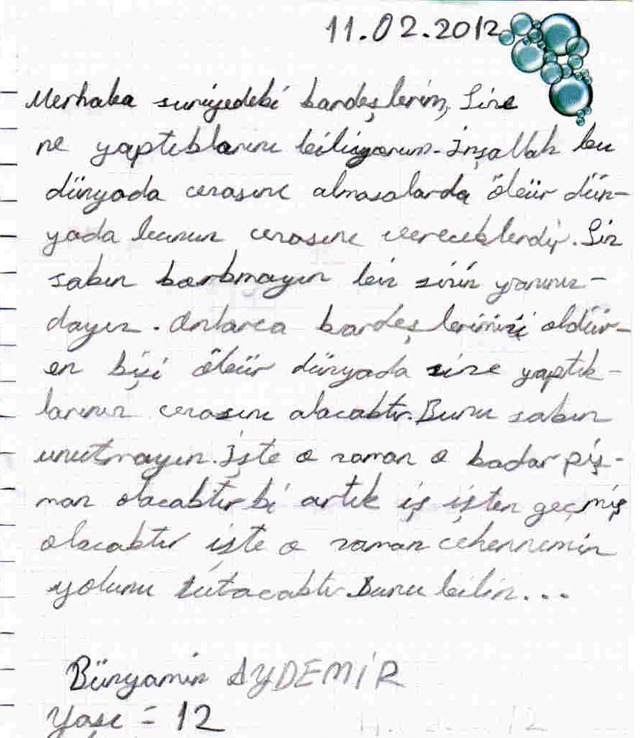 11.02.2012
Merhaba suriyedeki kardeşlerim, Size
ne yaptıklarını biliyorum. İnşallah bu
dünyada cezasını almasalarda öbür dün-
yada bunun cezasını vereceklerdir. Siz
sakın korkmayın biz sizin yanınız-
dayız. Onlarca kardeşlerimizi oldür-
en kişi öbür dünyada size yaptık-
larının cezasını alacaktır. Bunu sakın
unutmayın. İşte o zaman o kadar piş-
man olacaktır ki artık iş işten geçmiş
olacaktır işte o zaman cehennemin
yolunu tutacaktır. Bunu bilin...
Bünyamin AYDEMİR
Yaşı = 12